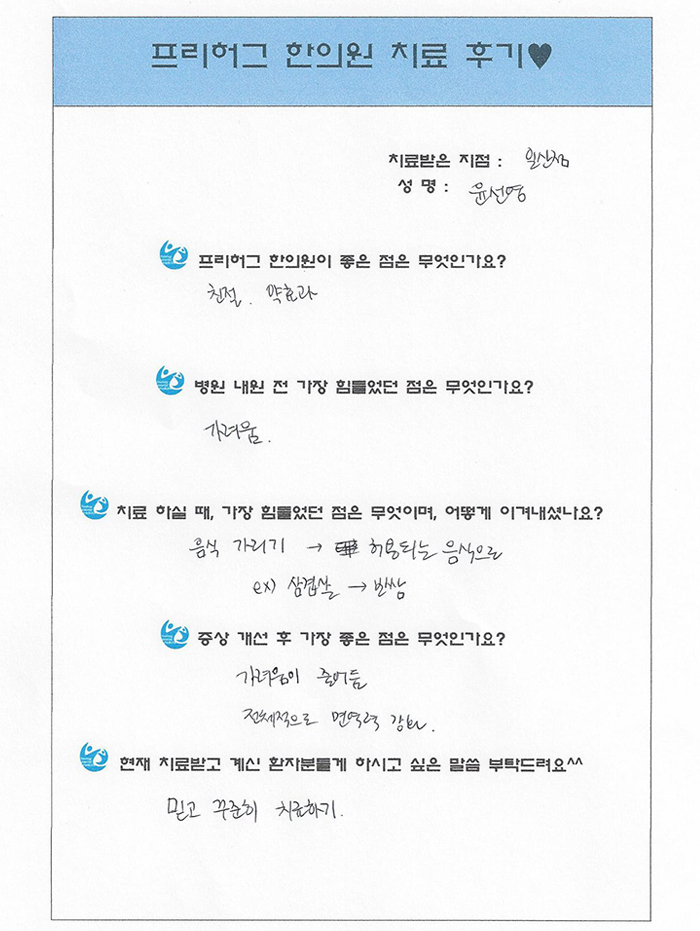 프리허그 한의원 치료 후기♥
치료받은 지점 : 일산점
성 명 : 윤선영
프리허그 한의원이 좋은 점은 무엇인가요?
친절. 약효과
병원 내원 전 가장 힘들었던 점은 무엇인가요?
가려움.
치료 하실 때, 가장 힘들었던 점은 무엇이며, 어떻게 이겨내셨나요?
음식 가리기 → 허용되는 음식으로
ex) 삼겹살 → 보쌈
증상 개선 후 가장 좋은 점은 무엇인가요?
가려움이 줄어듬
전체적으로 면역력 강화.
현재 치료받고 계신 환자분들게 하시고 싶은 말씀 부탁드려요^^
믿고 꾸준히 치료하기.